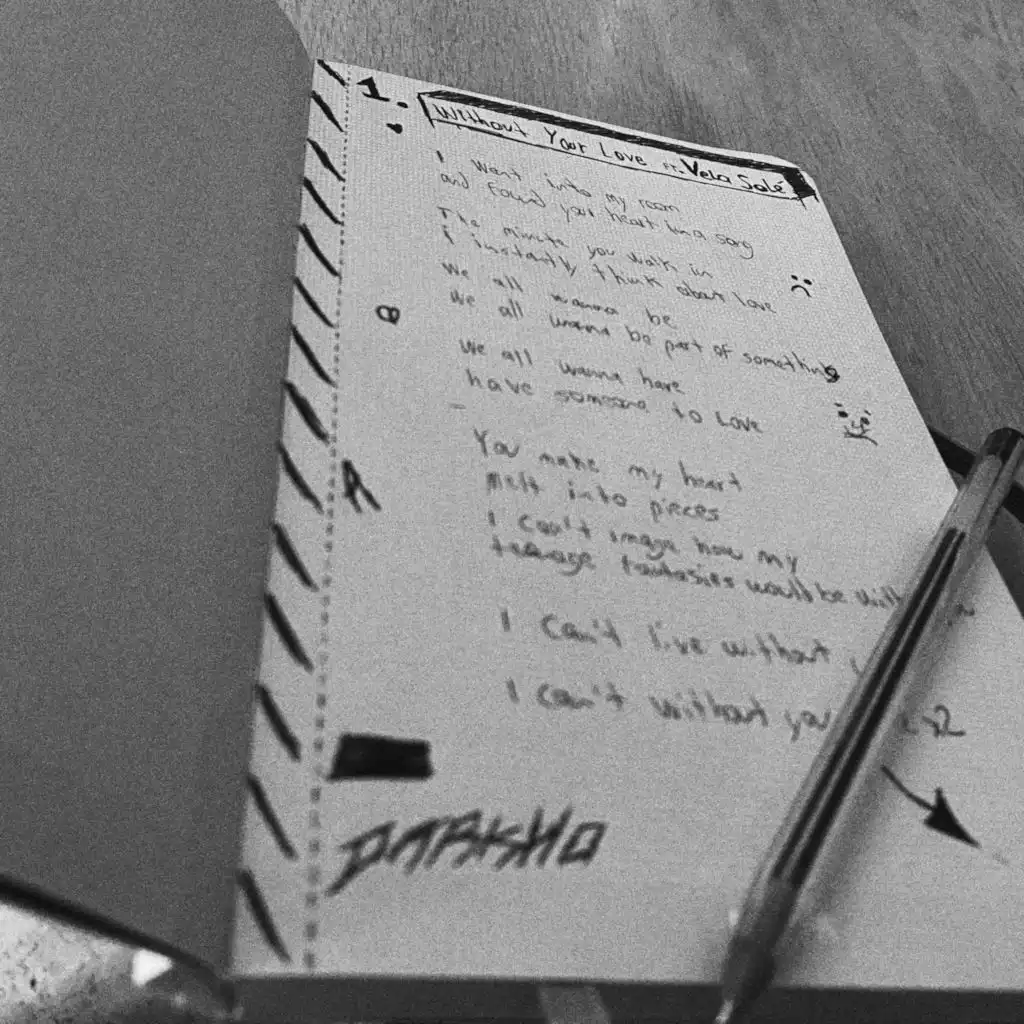 1.
Without Your Love FT. Vela Solé
I Went into my room
and Found your heart in a song
The minute you walk in
i instantly think about love
We all wanna be
We all wanna be part of something
B
We all wanna have
have someone to Love
You make my heart
Melt into pieces
A
I can't image how my
teenage fantasies would be
I can't live without
I can't without your x2
DARKSHO